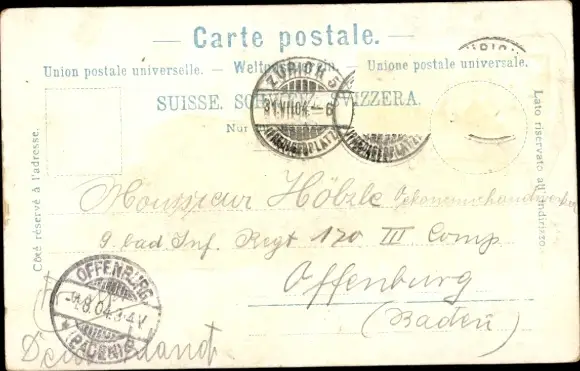 — Carte postale. —
Union postale universelle. — Weltpostverein. — Unione postale universale.
SUISSE. SCHWEIZ. SVIZZERA.
Nur
Côté réservé à l'adresse.
Lato riservato all'indirizzo.
ZÜRICH 5
31.VII.04.–6
ZÜRICH
Monsieur Hölzle
9. bad Inf. Regt 170 III Comp
Offenburg
(Baden)
OFFENBURG
1.8.04.3-4V
* (BADEN)
Deutschland